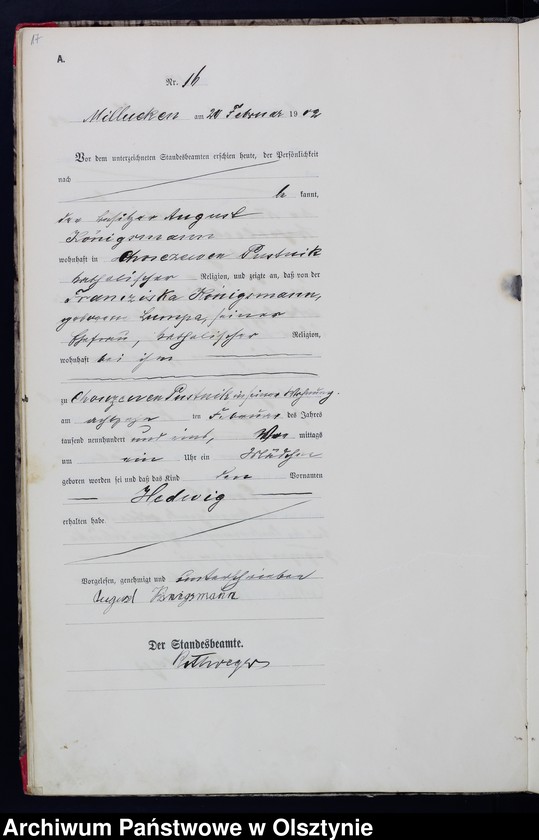 17
A.
Nr. 16
Millucken am 20 Februar 1902
Vor dem unterzeichneten Standesbeamten erschien heute, der Persönlichkeit
nach
kannt,
der Besitzer August
Königsmann
wohnhaft in Pustnik
katholischer Religion, und zeigte an, daß von der
Franziska Königsmann,
geborenen Lumpa, seiner
Ehefrau, katholischer Religion,
wohnhaft bei ihm
zu Pustnik in seiner Wohnung.
am achtzehn ten Februar des Jahres
tausend neunhundert und, Vor mittags
um ein Uhr ein Mädchen
geboren worden sei und daß das Kind den Vornamen
Hedwig
erhalten habe
Vorgelesen, genehmigt und unterschrieben
August Königsmann
Der Standesbeamte.
Archiwum Państwowe w Olsztynie